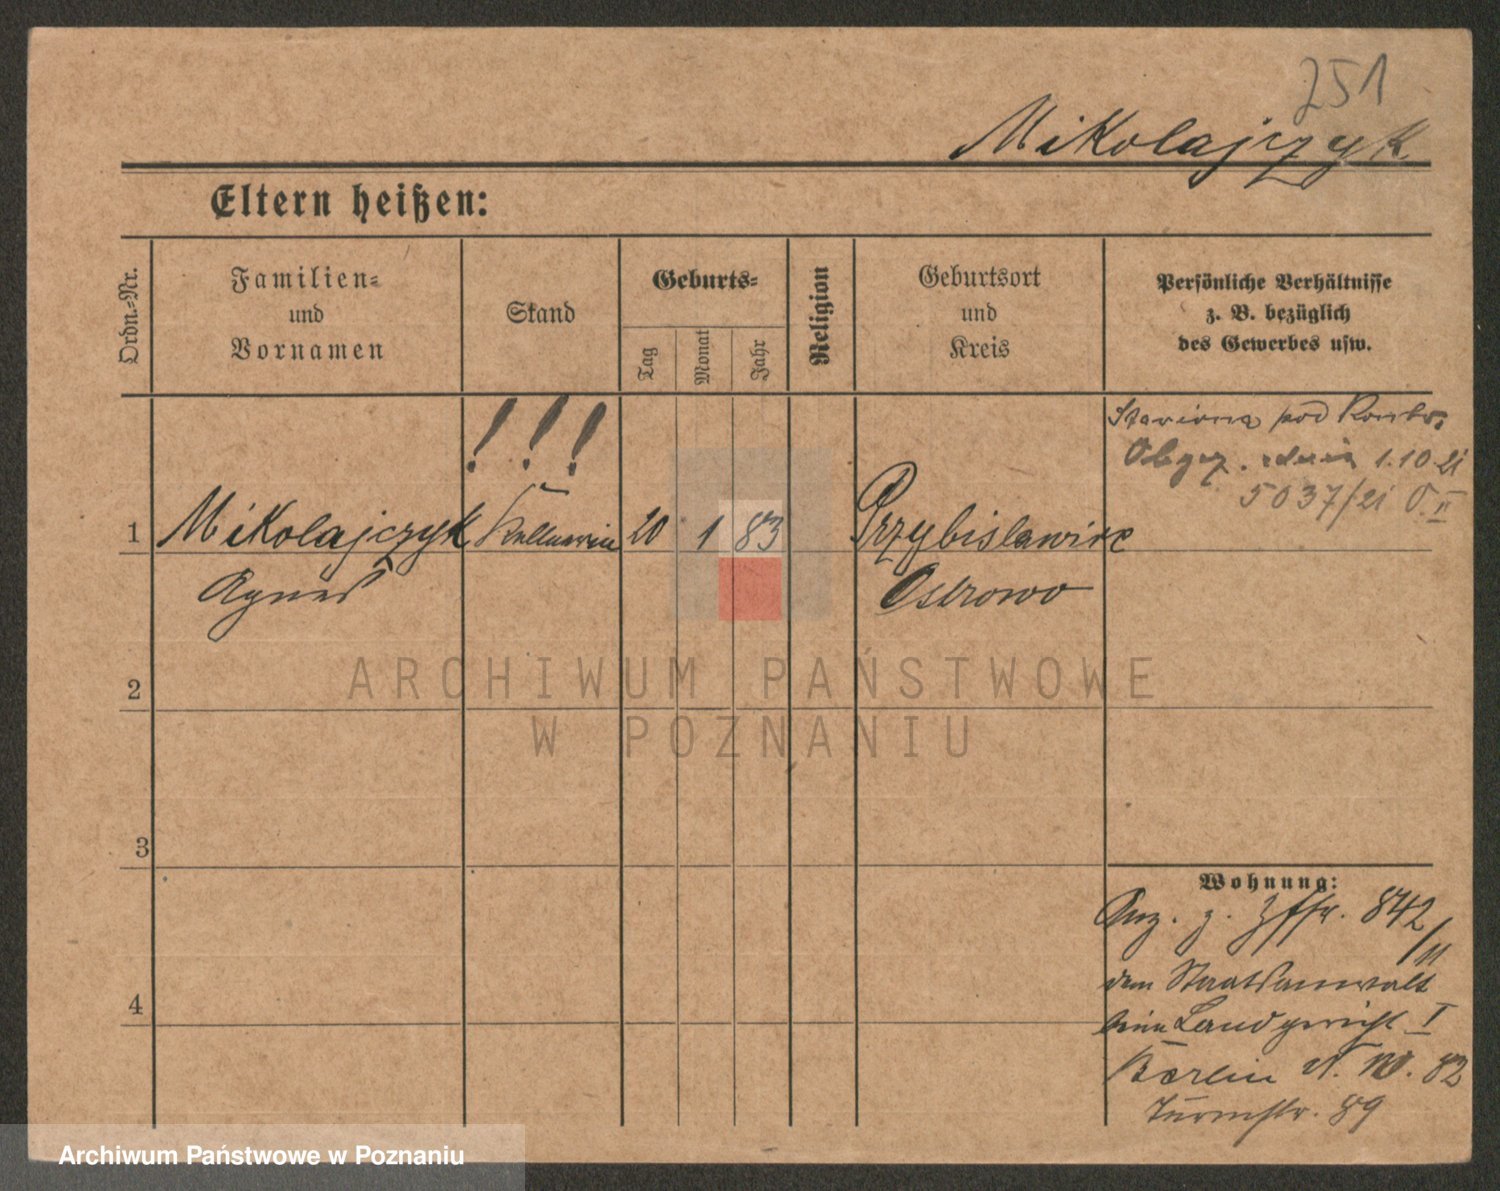 251
Mikolajczyk
Eltern heißen:
Ordn.-Nr.
Familien-
und
Vornamen
Stand
Geburts-
Tag
Monat
Jahr
Religion
Geburtsort
und
Kreis
Persönliche Verhältnisse
z. B. bezüglich
des Gewerbes usw.
! ! !
pod
1.10.21
5037/21 O. II
1 Mikolajczyk Kellnerin 20 1 83 Przybislawice
Agnes Ostrowo
2
3
4
Wohnung:
Anz. z. 842
/11
dem Staatsanwalt
beim Landgericht I
Berlin N. W. 82
Turmstr. 89
ARCHIWUM PAŃSTWOWE
W POZNANIU
Archiwum Państwowe w Poznaniu